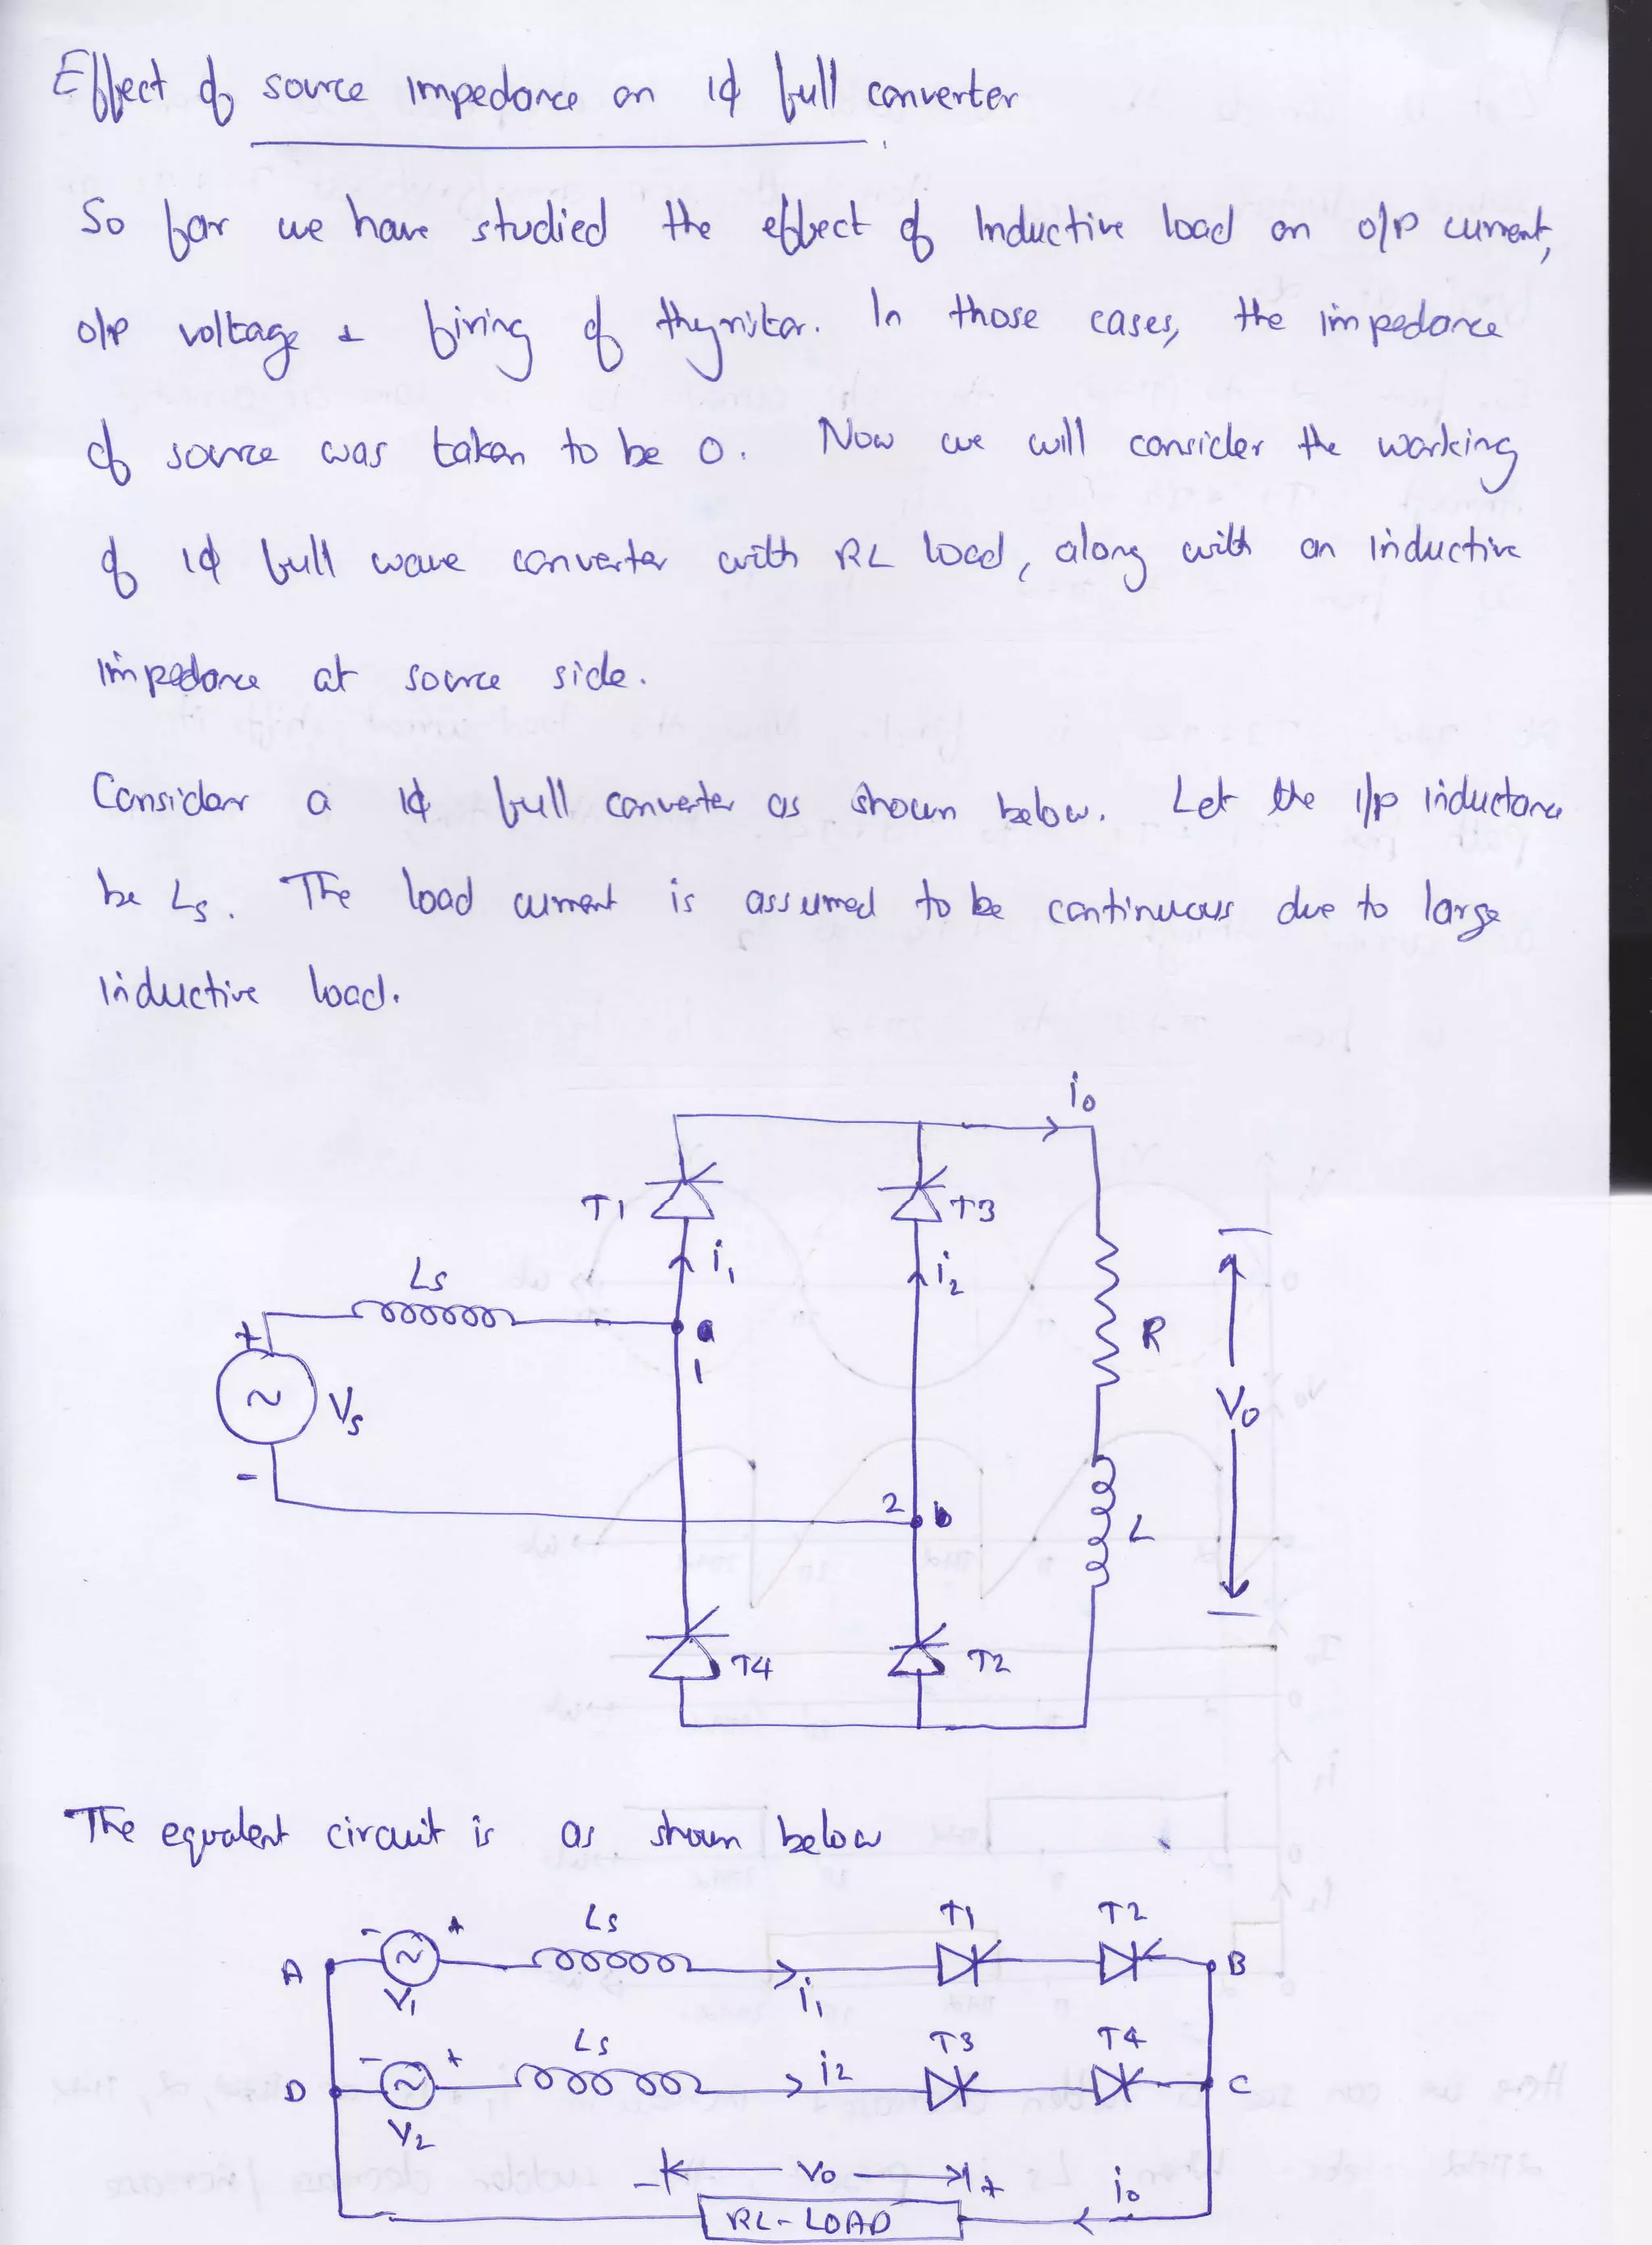 Effect of source impedance on 1ϕ full converter
So far we have studied the effect of Inductive load on o/p current,
o/p voltage & firing of thyristor. In those cases, the impedance
of source was taken to be 0. Now we will consider the working
of 1ϕ full wave converter with RL load, along with an inductive
impedance at source side.
Consider a 1ϕ full converter as shown below. Let the i/p inductance
be Ls. The load current is assumed to be continuous due to large
inductive load.
i0
T1
T3
i1
i2
Ls
+
a
1
R
Vs
V0
-
2
b
L
T4
T2
The equvalent circuit is as shown below
Ls
T1
T2
- +
A
B
V1
i1
Ls
T3
T4
- +
i2
D
C
V2
- V0 +
i0
RL-LOAD